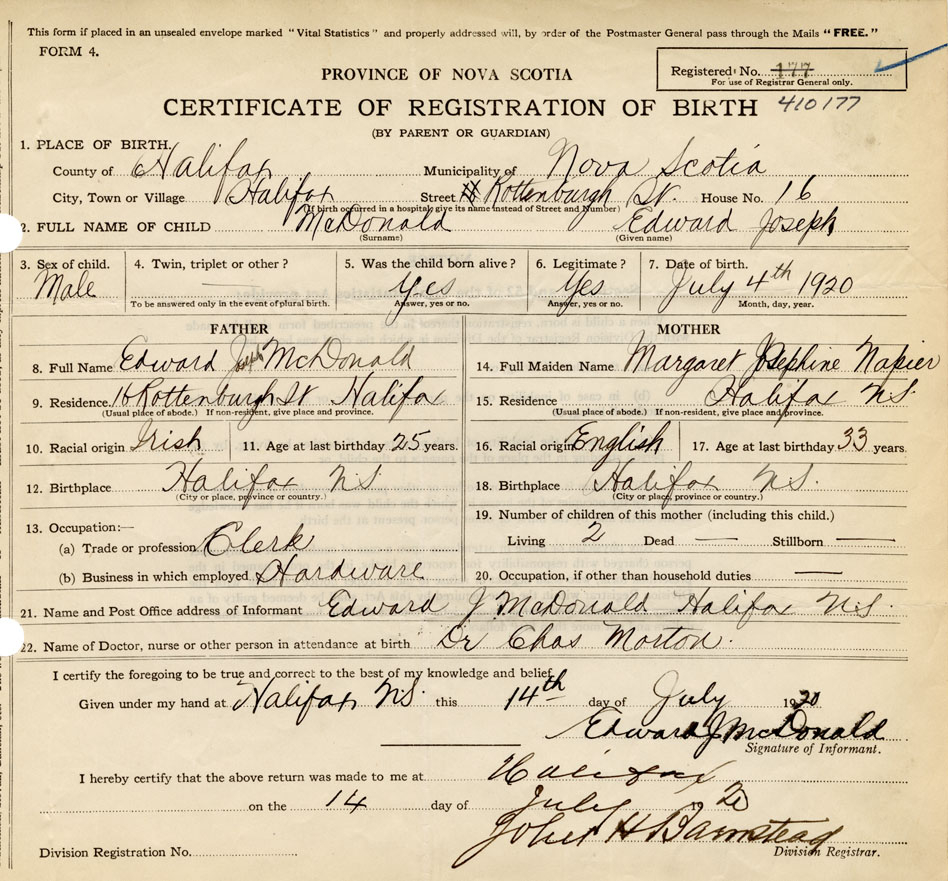 This form if placed in an unsealed envelope marked "Vital Statistics" and properly addressed will, by order of the Postmaster General pass through the Mails "FREE."
FORM 4.
Registered No. 177
For use of Registrar General only.
PROVINCE OF NOVA SCOTIA
CERTIFICATE OF REGISTRATION OF BIRTH 410177
(BY PARENT OR GUARDIAN)
1. PLACE OF BIRTH.
County of Halifax Municipality of Nova Scotia
City, Town or Village Halifax Street Rottenburgh St. House No. 16
(If birth occurred in a hospital give its name instead of Street and Number)
2. FULL NAME OF CHILD McDonald Edward Joseph
(Surname) (Given name)
3. Sex of child. 4. Twin, triplet or other? 5. Was the child born alive? 6. Legitimate? 7. Date of birth.
Male Yes Yes July 4th 1920
To be answered only in the event of plural birth. Answer, yes or no. Answer, yes or no. Month, day, year.
FATHER MOTHER
8. Full Name Edward Joseph McDonald 14. Full Maiden Name Margaret Josephine Napier
9. Residence. 16 Rottenburgh St Halifax 15. Residence Halifax N.S.
(Usual place of abode.) If non-resident, give place and province. (Usual place of abode.) If non-resident, give place and province.
10. Racial origin Irish 11. Age at last birthday 25 years. 16. Racial origin English 17. Age at last birthday 33 years.
12. Birthplace Halifax N S 18. Birthplace Halifax N.S.
(City or place, province or country.) (City or place, province or country.)
13. Occupation:— 19. Number of children of this mother (including this child.)
(a) Trade or profession Clerk Living 2 Dead — Stillborn —
(b) Business in which employed Hardware 20. Occupation, if other than household duties —
21. Name and Post Office address of Informant Edward J McDonald Halifax N.S.
22. Name of Doctor, nurse or other person in attendance at birth Dr Chas Morton.
I certify the foregoing to be true and correct to the best of my knowledge and belief.
Given under my hand at Halifax N.S. this 14th day of July 1920
Edward J McDonald
Signature of Informant.
I hereby certify that the above return was made to me at Halifax
on the 14 day of July 1920
John H Barnstead
Division Registration No. Division Registrar.